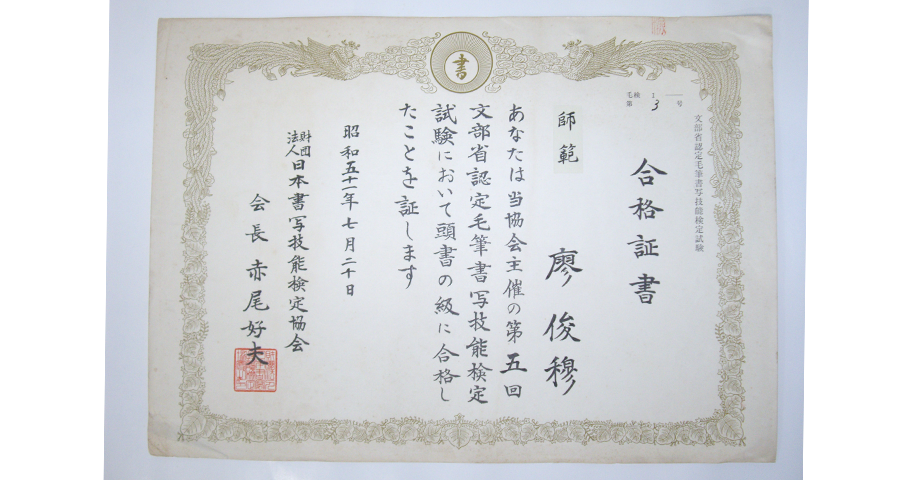 書
文部省認定毛筆書写技能検定試験
毛検 1
第 3 号
合格証書
師範
廖俊穆
あなたは当協会主催の第五回
文部省認定毛筆書写技能検定
試験において頭書の級に合格し
たことを証します
昭和五十一年七月二十日
財団
法人日本書写技能検定協会
会長 赤尾好夫